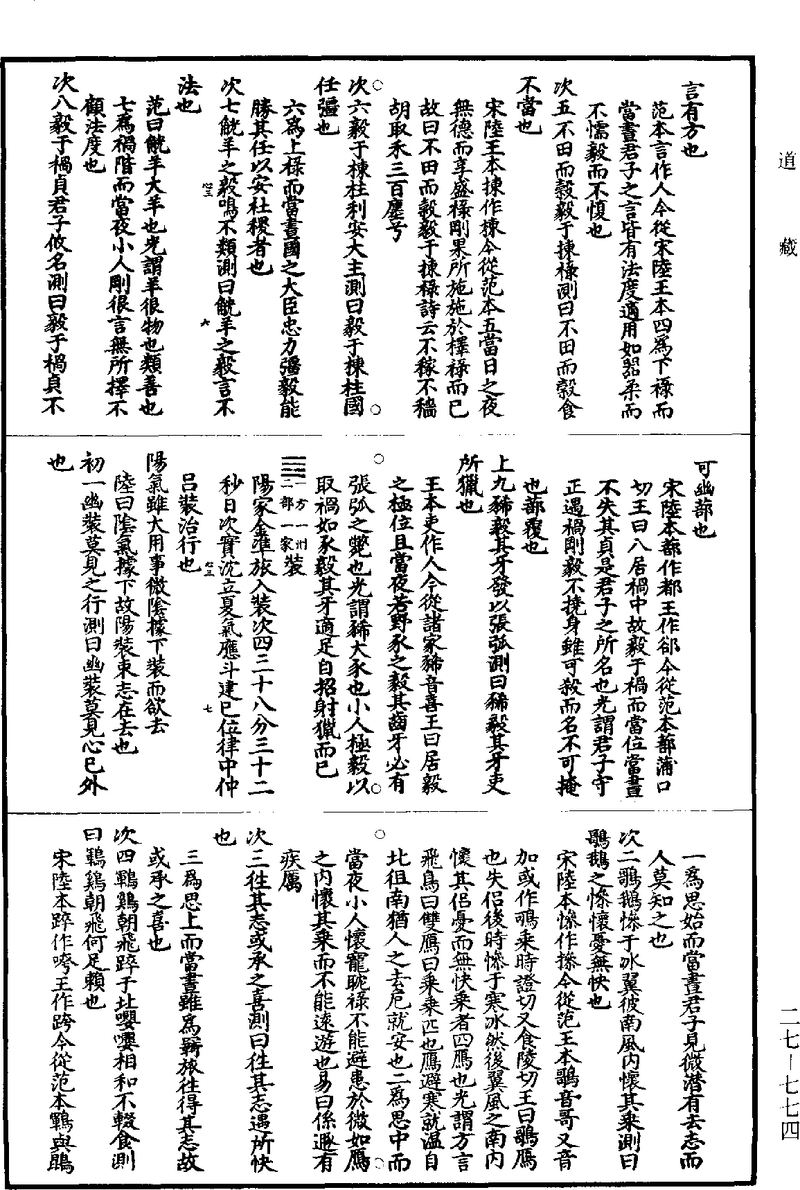 道藏
言有方也
范本言作人今從宋陸王本四爲下祿而
當晝君子之言皆有法度適用如器柔而
不懦毅而不愎也
次五不田而穀毅于揀祿測曰不田而穀食
不當也
宋陸王本揀作楝今從范本五當日之夜
無德而享盛祿剛果所施施於擇祿而已
故曰不田而穀毅于揀祿詩云不稼不穡
胡取禾三百廛兮
次六毅于棟柱利安大主測曰毅于棟柱國
任彊也
六爲上祿而當晝國之大臣忠力彊毅能
勝其任以安社稷者也
次七觥羊之毅鳴不類測曰觥羊之毅言不
法也
范曰觥羊大羊也光謂羊很物也類善也
七爲禍階而當夜小人剛很言無所擇不
顧法度也
次八毅于禍貞君子攸名測曰毅于禍貞不
可幽蔀也
宋陸本蔀作都王作郤今從范本蔀蒲口
切王曰八居禍中故毅于禍而當位當晝
不失其貞是君子之所名也光謂君子守
正遇禍剛毅不撓身雖可殺而名不可掩
也蔀覆也
上九豨毅其牙發以張弧測曰豨毅其牙吏
所獵也
王本吏作人今從諸家豨音喜王曰居毅
之極位且當夜若野豕之毅其齒牙必有
張弧之斃也光謂豨大豕也小人極毅以
取禍如豕毅其牙適足自招射獵而已
一方一州
二部一家
裝
陽家金準旅入裝次四三十八分三十二
秒日次實沈立夏氣應斗建巳位律中仲
呂裝治行也
陽氣雖大用事微陰據下裝而欲去
陸曰陰氣據下故陽裝束志在去也
初一幽裝莫見之行測曰幽裝莫見心已外
也
一爲思始而當晝君子見微潛有去志而
人莫知之也
次二鶪鵝慘于冰翼彼南風内懷其乘測曰
鶪鵝之慘懷憂無快也
宋陸本慘作摻今從范王本鶪音哥又音
加或作鳱乘時證切又食陵切王曰鶪鴈
也失侣後時慘于寒冰然後翼風之南内
懷其侣憂而無快乘者四鴈也光謂方言
飛鳥曰雙鴈曰乘乘匹也鴈避寒就温自
北徂南猶人之去危就安也二爲思中而
當夜小人懷寵耽祿不能避患於微如鴈
之内懷其乘而不能遠遊也易曰係遯有
疾厲
次三往其志或承之喜測曰往其志遇所快
也
三爲思上而當晝雖爲羇旅往得其志故
或承之喜也
次四鶤鷄朝飛踤于北嚶嚶相和不輟食測
曰鶤鷄朝飛何足賴也
宋陸本踤作啐王作跨今從范本鶤與鵾
二七-七七四